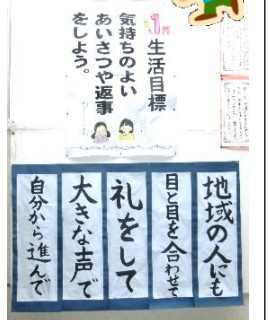 1月
生活目標
気持ちのよい
あいさつや返事
をしよう。
地域の人にも
目と目を合わせて
礼をして
大きな声で
自分から進んで